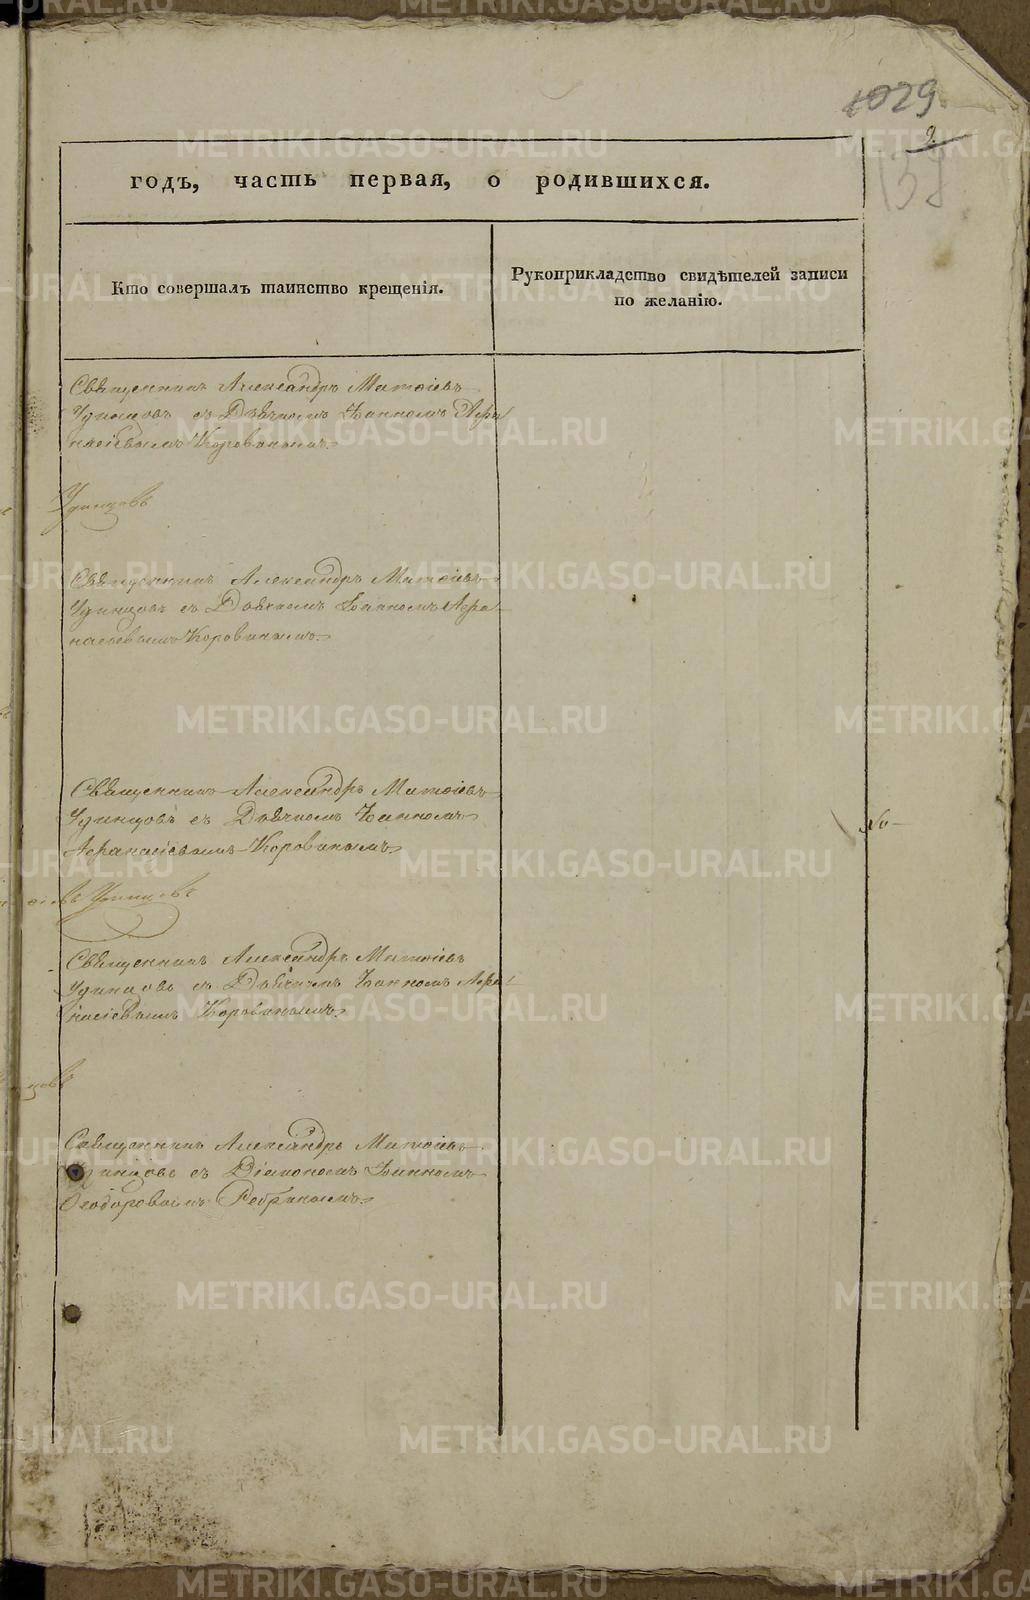 1029
2
138
годъ, часть первая, о родившихся.
Кто совершалъ таинство крещенія.
Рукоприкладство свидѣтелей записи
по желанію.
Священникъ Александръ Матѳіевъ
Удинцовъ съ Дьячкомъ Іоанномъ Афа
насіевымъ Коровинымъ.
Удинцовъ
Священникъ Александръ Матѳіевъ
Удинцовъ съ Дьячкомъ Іоанномъ Афа
насіевымъ Коровинымъ.
Священникъ Александръ Матѳіевъ
Удинцовъ съ Дьячкомъ Іоанномъ
Афанасіевымъ Коровинымъ.
Удинцовъ
Священникъ Александръ Матѳіевъ
Удинцовъ съ Дьячкомъ Іоанномъ Афа
насіевымъ Коровинымъ.
Священникъ Александръ Матѳіевъ
Удинцовъ съ Діакономъ Іоанномъ
Ѳеодоровымъ Ребринымъ.
METRIKI.GASO-URAL.RU